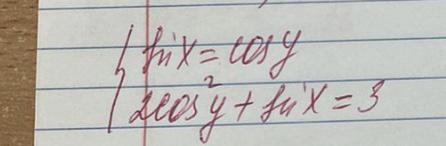 sin x = cos y
2cos²y + sin x = 3